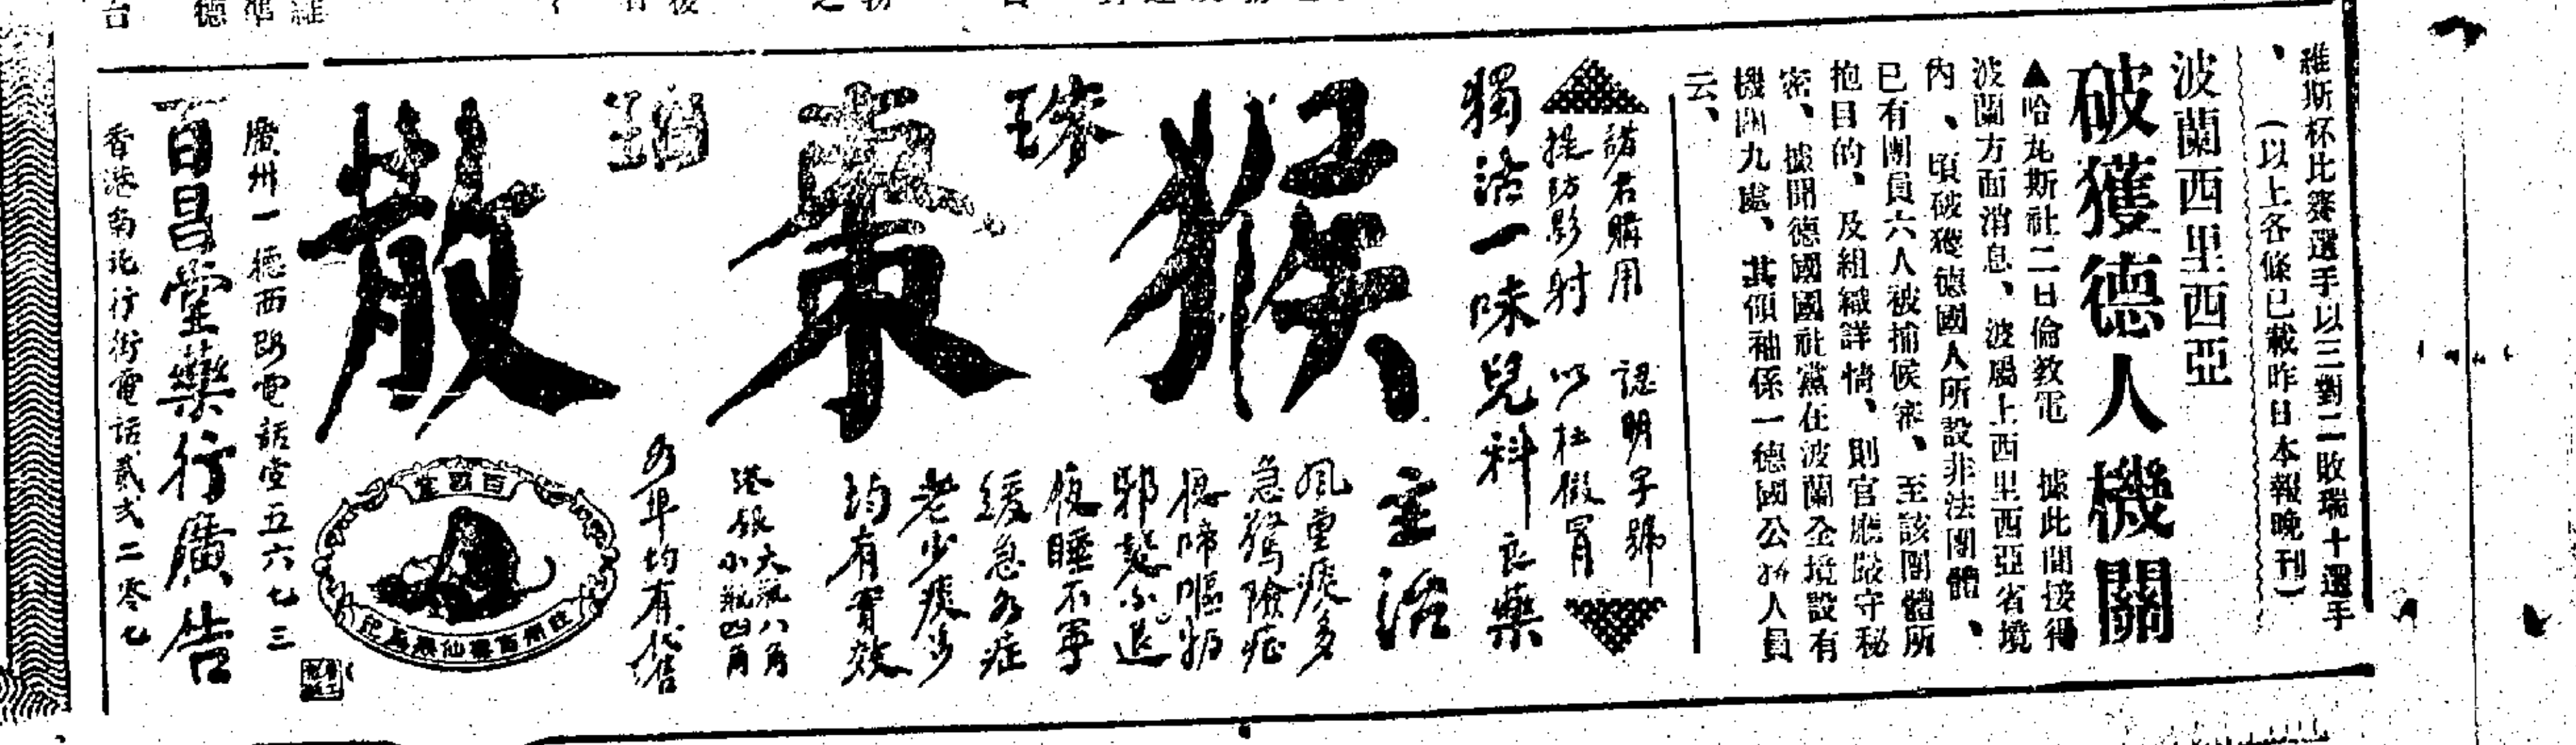 維斯杯比賽選手以三對二敗瑞十選手
、(以上各條已載昨日本報晚刊)
波蘭西里西亞
破獲德人機關
▲哈瓦斯社二日倫敦電 據此間接得
波蘭方面消息、波屬上西里西亞省境
內、頃破獲德國人所設非法團體、
已有團員六人被捕候審、至該團體所
抱目的、及組織詳情、則官廳嚴守秘
密、據聞德國國社黨在波蘭全境設有
機關九處、其領袖係一德國公務人員
云、
諸君購用 認明字號
提防影射 以杜假冒
獨沽一味兒科良藥
猴棗散
主治
風重痰多
急驚險症
邪熱不退
夜睡不寧
緩急各症
老少痰多
均有實效
港銀大瓶八角
小瓶四角
各埠均有代售
廣州一德西路電話壹五六七三
百昌堂藥行廣告
香港南北行街電話貳式二零七